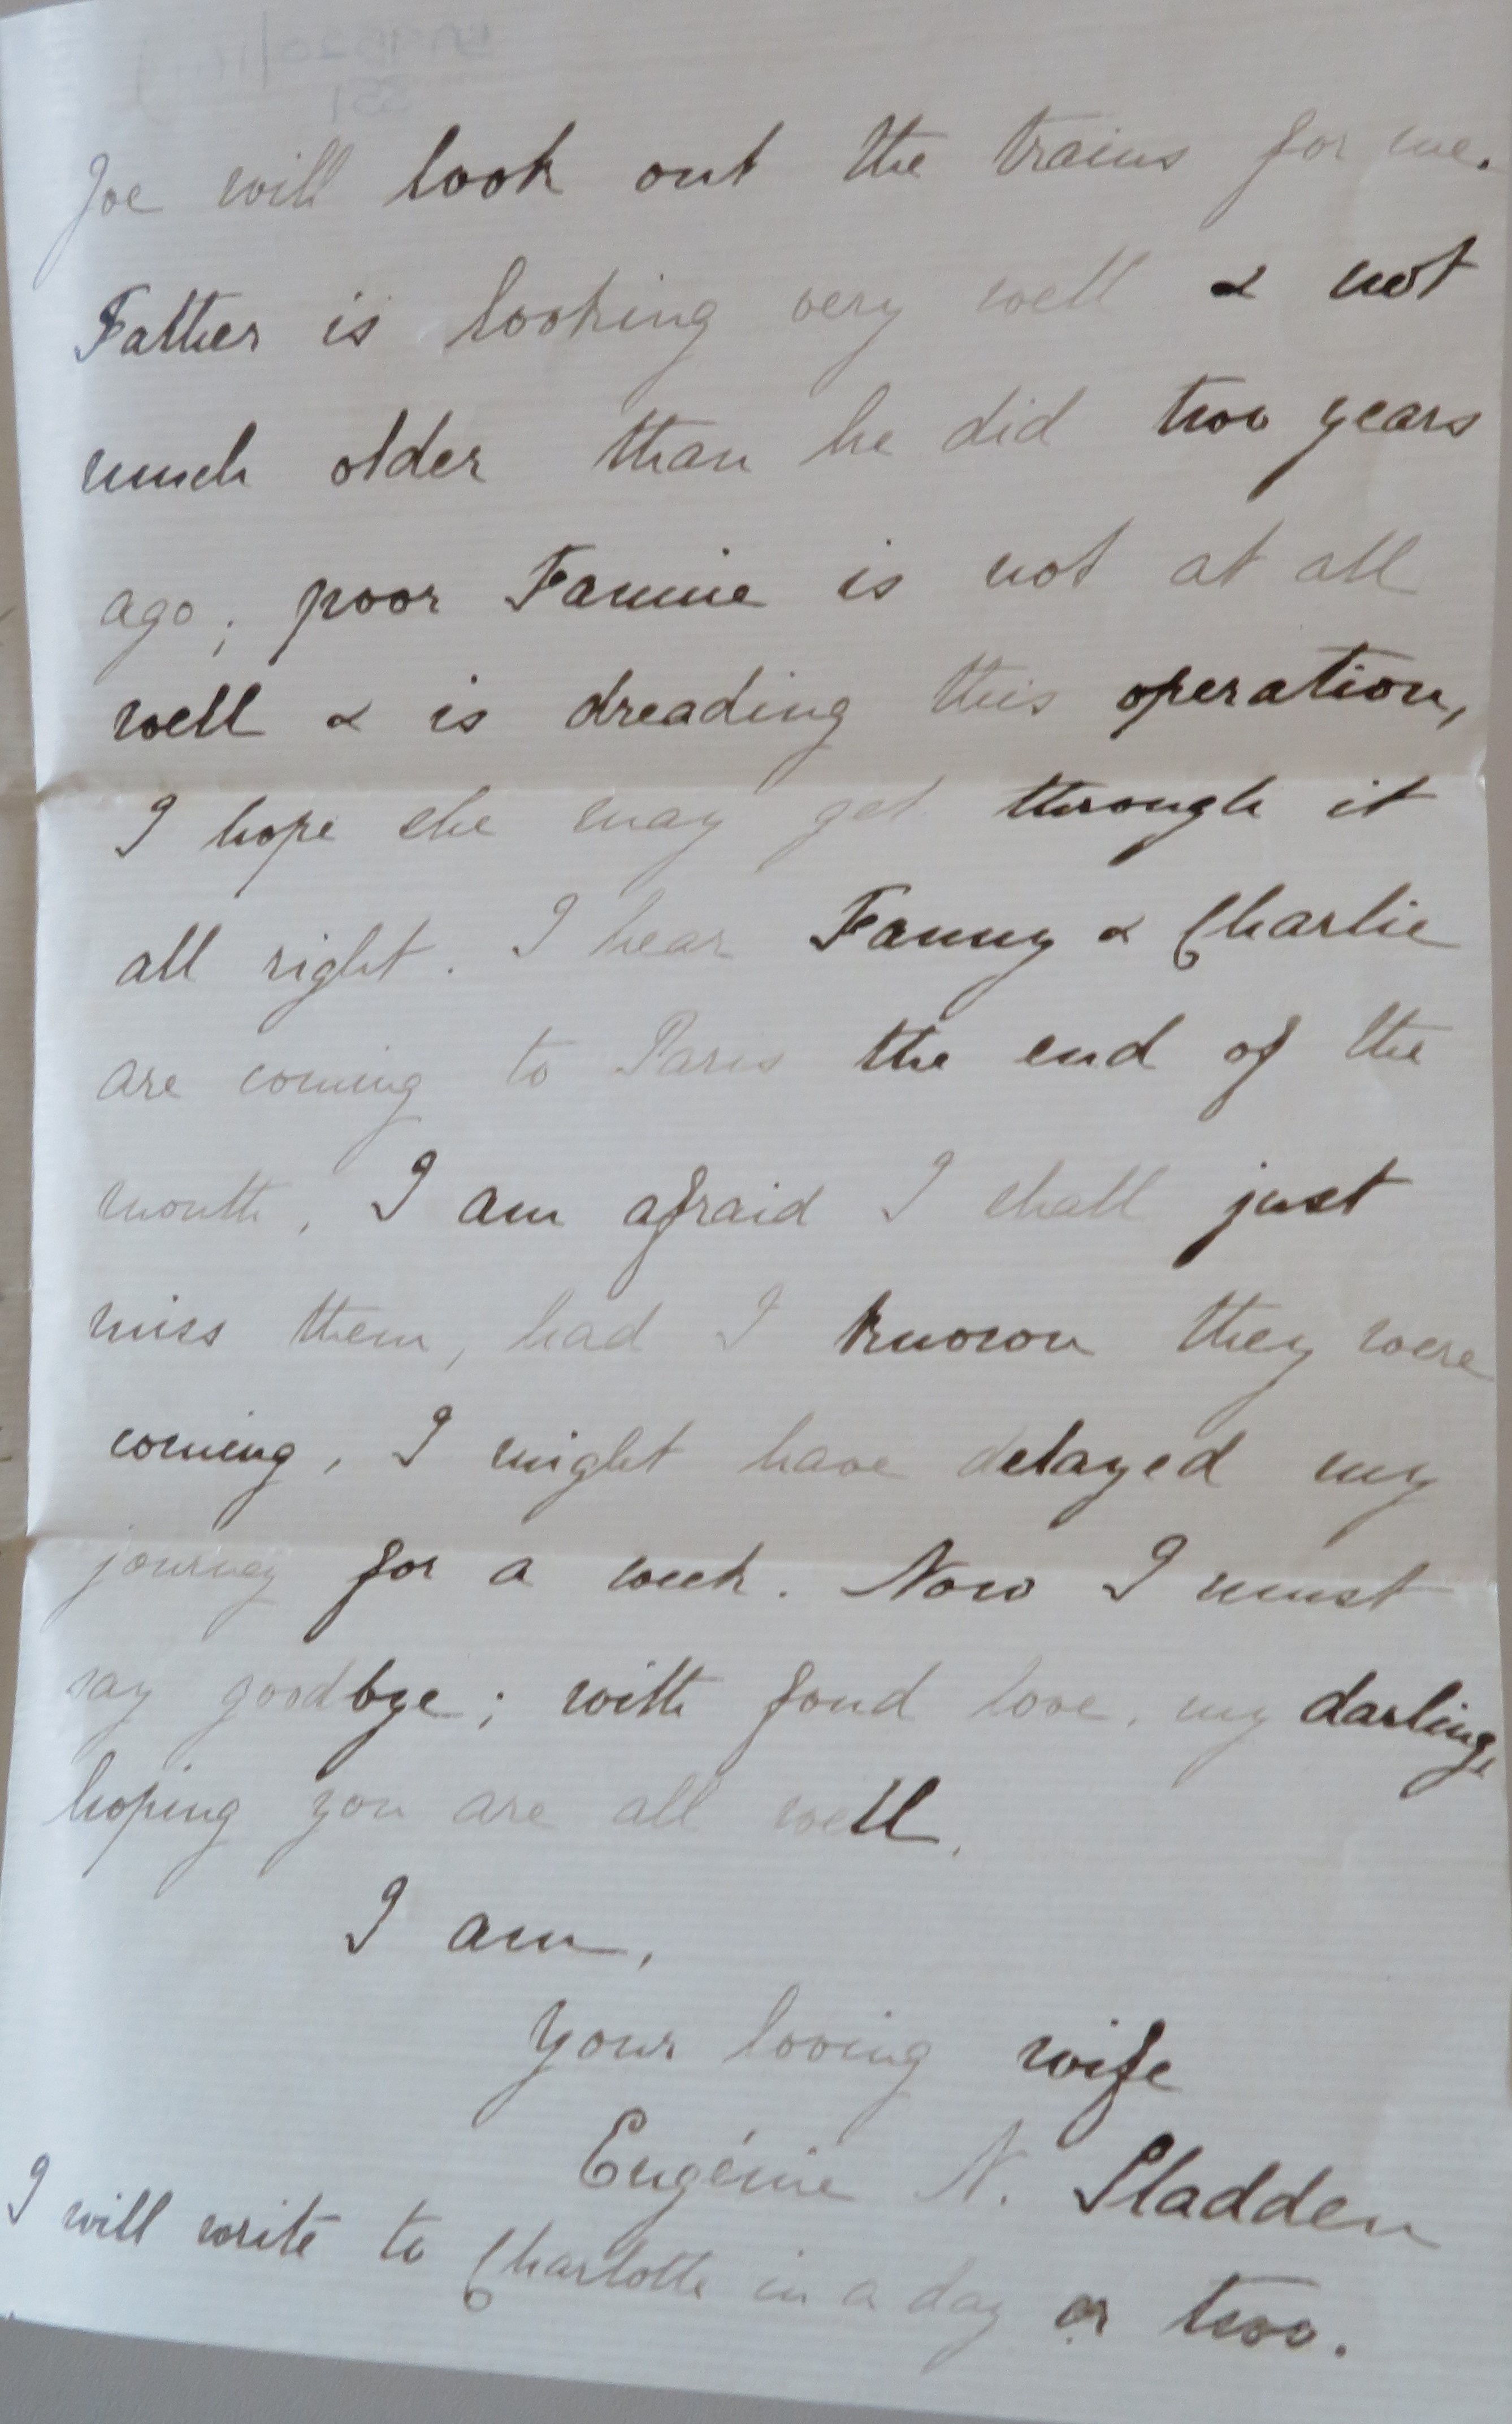 Joe will look out the trains for me.
Father is looking very well & not
much older than he did two years
ago; poor Fannie is not at all
well & is dreading this operation,
I hope she may get through it
all right. I hear Fanny & Charlie
are coming to Paris the end of the
month, I am afraid I shall just
miss them, had I known they were
coming, I might have delayed my
journey for a week. Now I must
say goodbye; with fond love, my darling,
hoping you are all well,
I am,
your loving wife
Eugénie N. Sladden
I will write to Charlotte in a day or two.